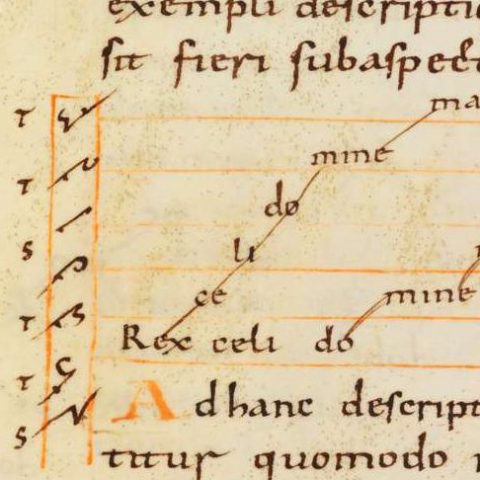 exempli descriptio
sit fieri subaspect
T ma
T mine
do
S li
T ce mine
T Rex celi do
S Ad hanc descript
titus quomodo